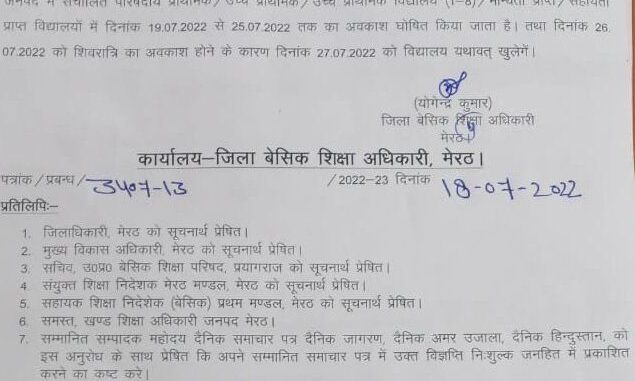 जनपद में संचालित परिषदीय प्राथमिक/उच्च प्राथमिक/उच्च प्राथमिक विद्यालय (1-8)/मान्यता प्राप्त/सहायता
प्राप्त विद्यालयों में दिनांक 19.07.2022 से 25.07.2022 तक का अवकाश घोषित किया जाता है। तथा दिनांक 26.
07.2022 को शिवरात्रि का अवकाश होने के कारण दिनांक 27.07.2022 को विद्यालय यथावत् खुलेगें।
(योगेन्द्र कुमार)
जिला बेसिक शिक्षा अधिकारी
मेरठ।
कार्यालय–जिला बेसिक शिक्षा अधिकारी, मेरठ।
पत्रांक/प्रबन्ध/ 3407-13 /2022–23 दिनांक 18-07-2022
प्रतिलिपिः–
1. जिलाधिकारी, मेरठ को सूचनार्थ प्रेषित।
2. मुख्य विकास अधिकारी, मेरठ को सूचनार्थ प्रेषित।
3. सचिव, उ०प्र० बेसिक शिक्षा परिषद, प्रयागराज को सूचनार्थ प्रेषित।
4. संयुक्त शिक्षा निदेशक मेरठ मण्डल, मेरठ को सूचनार्थ प्रेषित।
5. सहायक शिक्षा निदेशक (बेसिक) प्रथम मण्डल, मेरठ को सूचनार्थ प्रेषित।
6. समस्त, खण्ड शिक्षा अधिकारी जनपद मेरठ।
7. सम्मानित सम्पादक महोदय दैनिक समाचार पत्र दैनिक जागरण, दैनिक अमर उजाला, दैनिक हिन्दुस्तान, को
इस अनुरोध के साथ प्रेषित कि अपने सम्मानित समाचार पत्र में उक्त विज्ञप्ति निःशुल्क जनहित में प्रकाशित
करने का कष्ट करे।